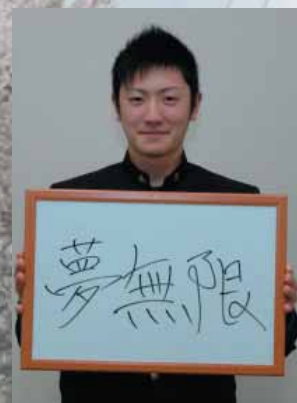 夢無限